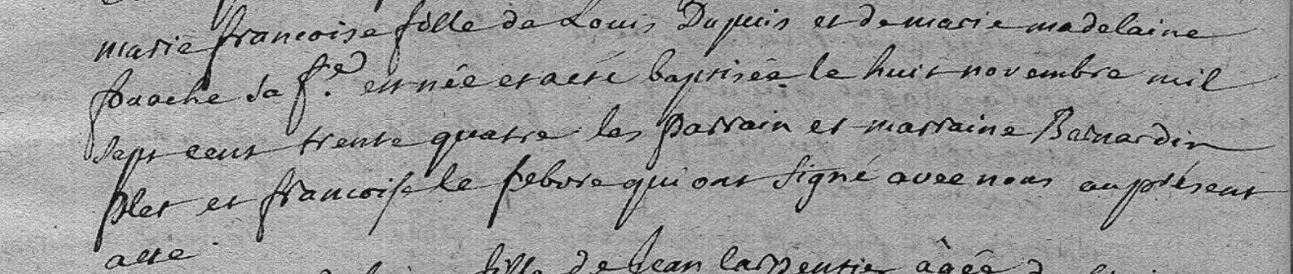 marie francoise fille de Louis Dupuis et de marie madelaine
sa f.e est née et a eté baptisée le huit novembre mil
sept cent trente quatre les parrain et marraine Bernardin
plet et francoise le febvre qui ont signé avec nous au présent
acte
fille de Jean Carpentier àgée